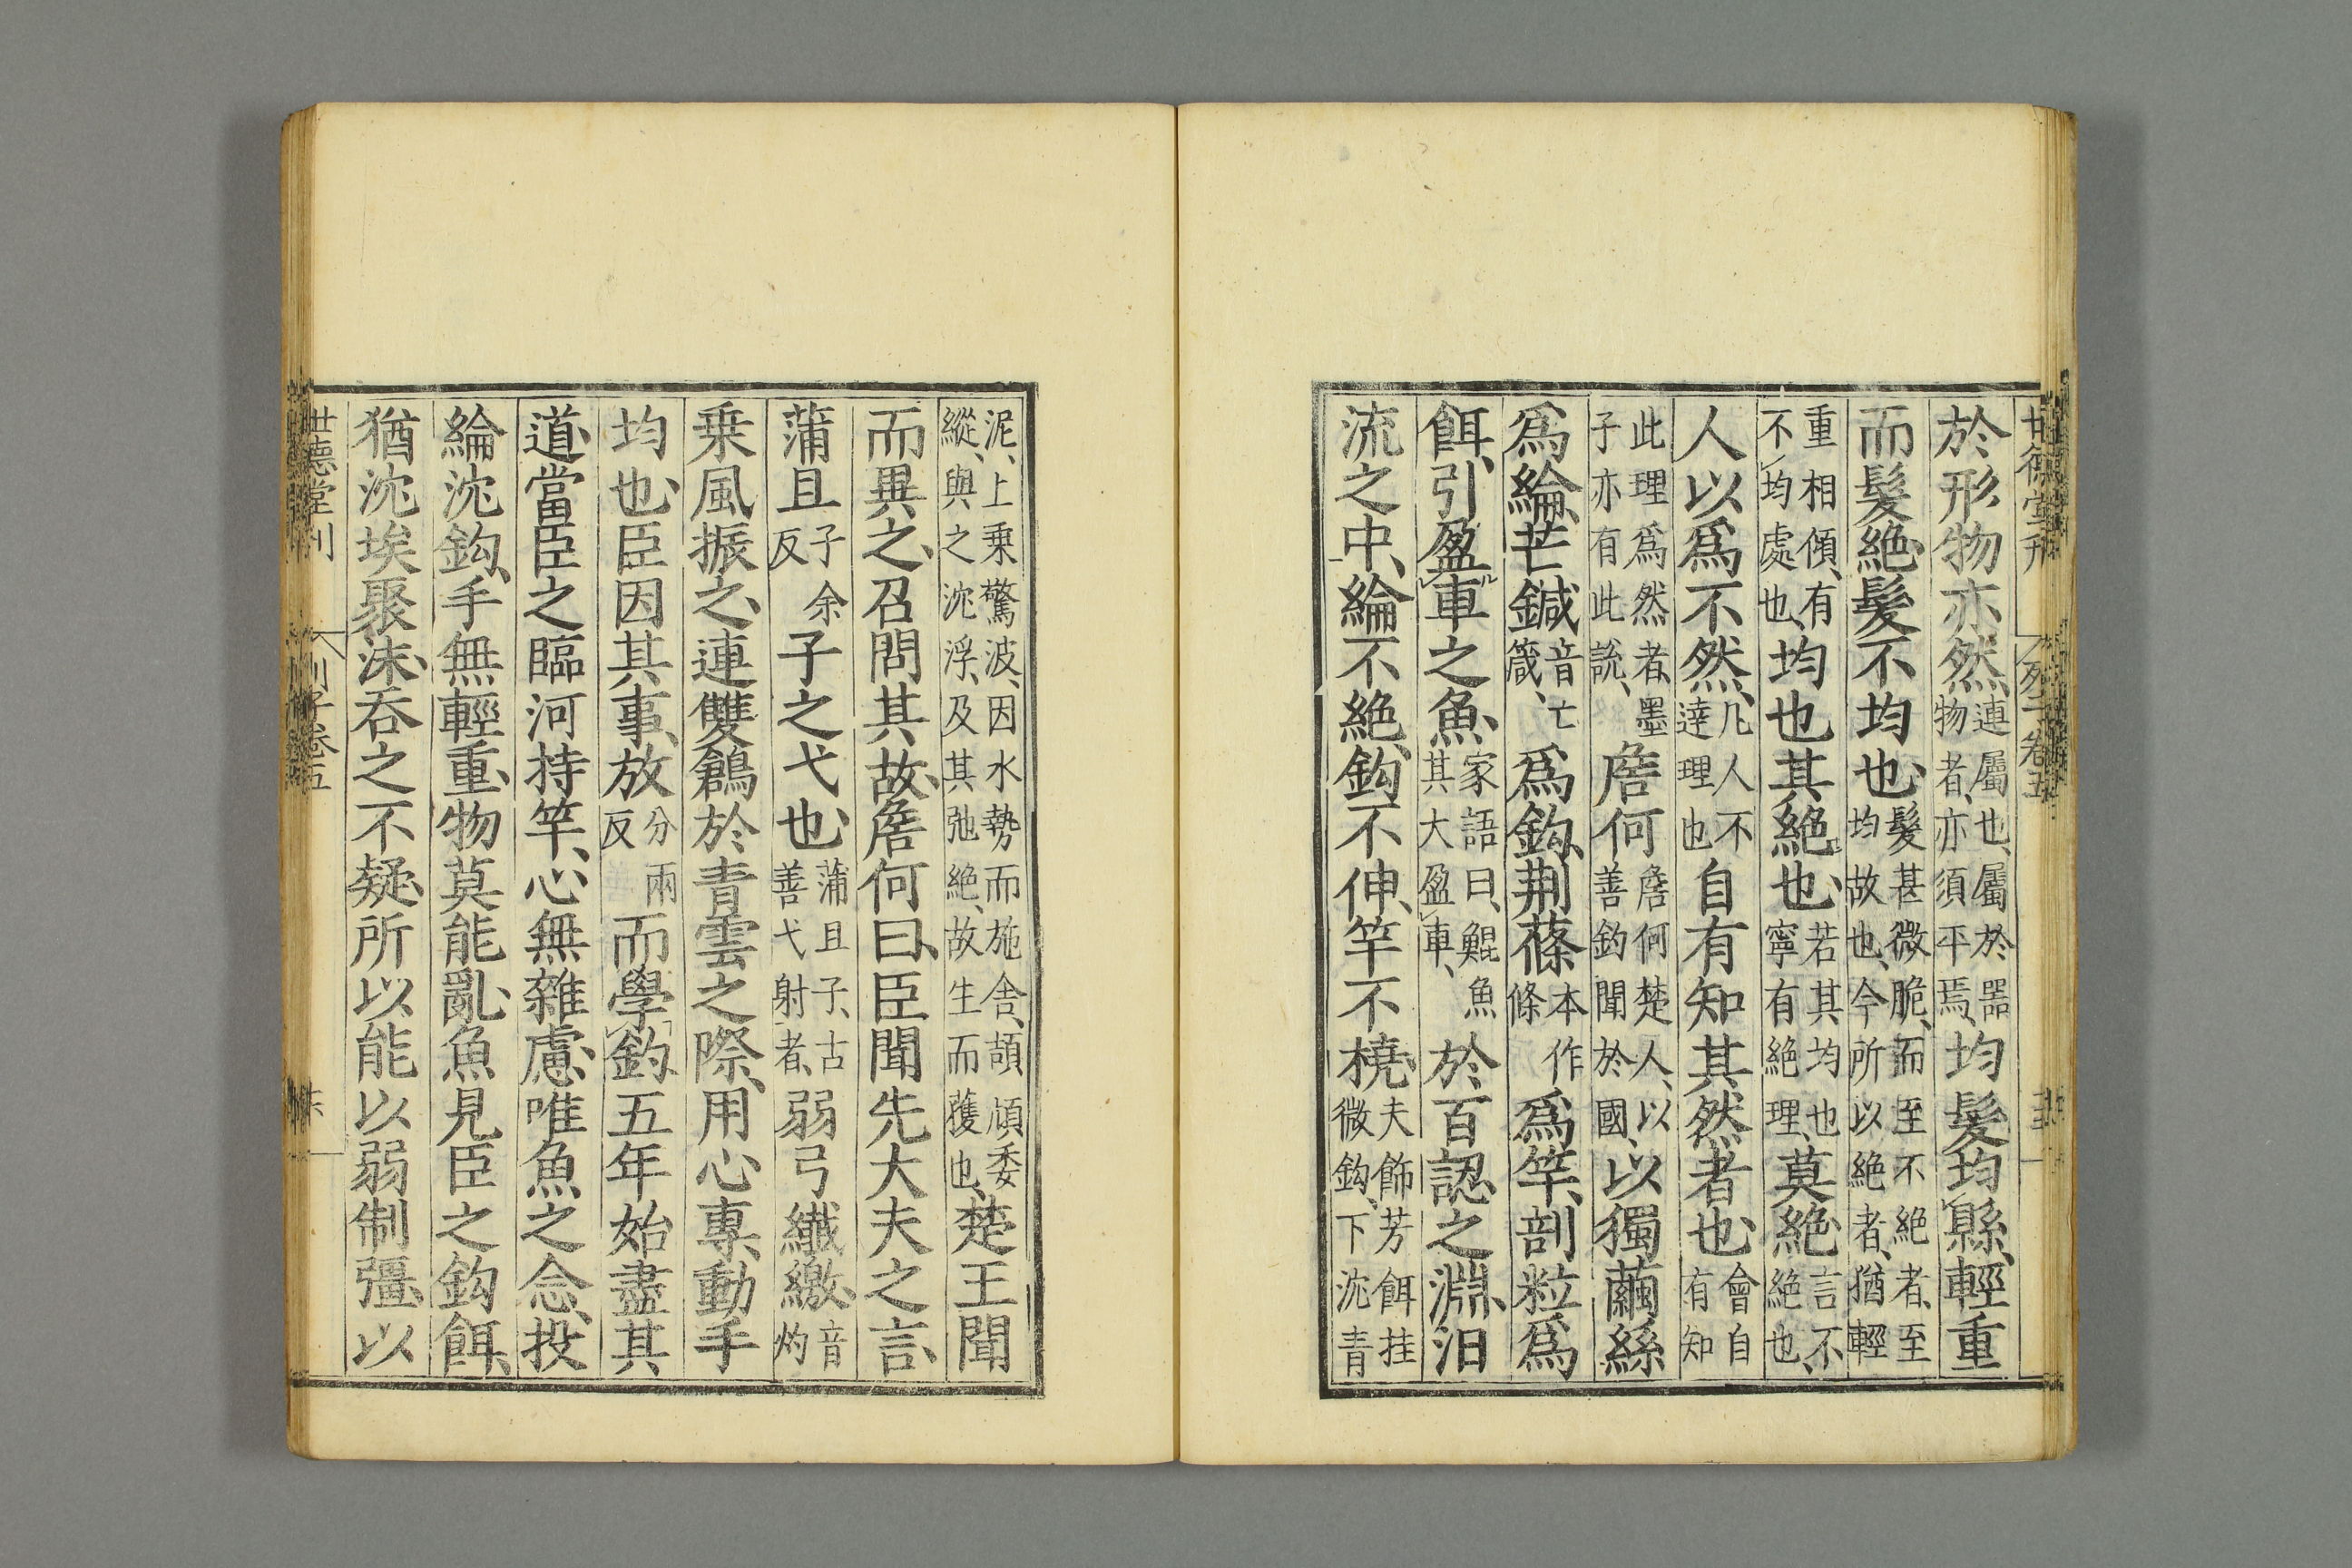 世德堂刊 列子卷五
於形物亦然連屬也、屬於器物者、亦須平焉、均髮均縣、輕重
而髮絶、髮不均也、髮甚微脆、而至不絶者、至均故也、今所以絶者、猶輕
重相傾、有不均處也、均也其絶也、若其均也寧有絶理、莫絶、言不絶也、
人以爲不然、凡人不達理也自有知其然者也、會自有知
此理爲然者、墨子亦有此說、詹何詹何楚人、以善釣聞於國、以獨繭絲
爲綸、芒鍼音亡箴、爲鈎、荆蓧本作條爲竿、剖粒爲
餌、引盈車之魚、家語曰、鯤魚其大盈車、於百認之淵、汨
流之中、綸不絶、鈎不伸、竿不橈、夫飾芳餌挂微鈎、下沈青
泥、上乗驚波、因水勢而施舍、頡頏委縱、與之沈浮、及其弛絶、故生而獲也、楚王聞
而異之、召問其故、詹何曰、臣聞先大夫之言、
蒲且子余反子之弋也、蒲且子、古善弋射者、弱弓纎繳、音灼
乗風振之、連雙鶬於青雲之際、用心專、動手
均也、臣因其事、放分兩反而學釣、五年始盡其
道、當臣之臨河持竿、心無雜慮、唯魚之念、投
綸沈鈎、手無輕重、物莫能亂、魚見臣之鈎餌、
猶沈埃聚沫、呑之不疑、所以能以弱制彊、以
世德堂刊 列子卷五